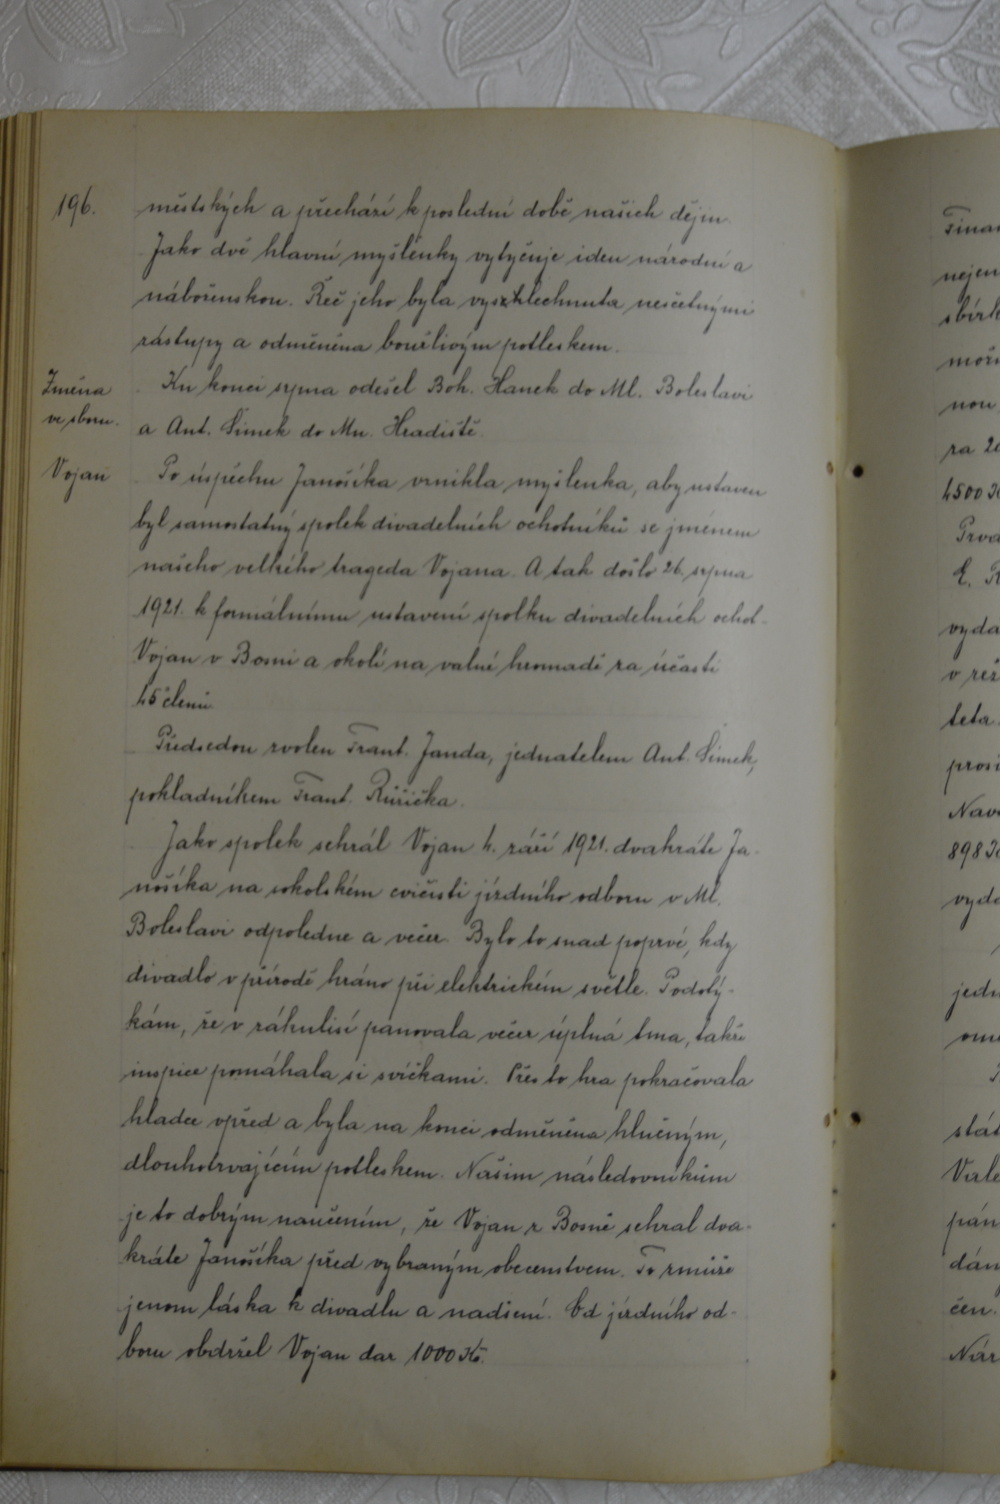 196.
městských a přechází k poslední době našich dějin.
Jako dvě hlavní myšlénky vytyčuje ideu národní a
náboženskou. Řeč jeho byla vyslechnuta nesčetnými
zástupy a odměněna bouřlivým potleskem.
Změna
ve sboru.
Ku konci srpna odešel Boh. Hanek do Ml. Boleslavi
a Ant. Šimek do Mn. Hradiště.
Vojan
Po úspěchu Janošíka vznikla myšlenka, aby ustaven
byl samostatný spolek divadelních ochotníků se jménem
našeho velkého trageda Vojana. A tak došlo 26. srpna
1921. k formálnímu ustavení spolku divadelních ochot-
Vojan v Bosni a okolí na valné hromadě za účasti
45 členů.
Předsedou zvolen Frant. Janda, jednatelem Ant. Šimek,
pokladníkem Frant. Růžička.
Jako spolek sehrál Vojan 4. září 1921. dvakráte Ja-
nošíka na sokolském cvičišti jízdního odboru v Ml.
Boleslavi odpoledne a večer. Bylo to snad poprvé, kdy
divadlo v přírodě hráno při elektrickém světle. Podotý-
kám, že v zákulisí panovala večer úplná tma, takže
inspice pomáhala si svíčkami. Přes to hra pokračovala
hladce vpřed a byla na konci odměněna hlučným,
dlouhotrvajícím potleskem. Našim následovníkům
je to dobrým naučením, že Vojan z Bosně sehrál dva-
kráte Janošíka před vybraným obecenstvem. To zmůže
jenom láska k divadlu a nadšení. Od jízdního od-
boru obdržel Vojan dar 1000 Kč.
Finan
nejen
sbírk
možn
nou
za 20
4500 K
Prva
E. R
vyda
v rež
teta.
prosi
Nav
898 K
vyda
jedn
ome
stát
Vale
pán
dán
čen.
Nár